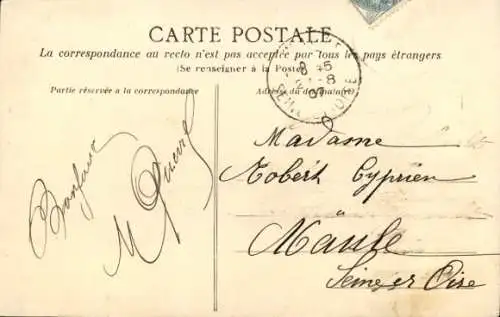 CARTE POSTALE
La correspondance au recto n'est pas acceptée par tous les pays étrangers
(Se renseigner à la Poste)
Partie réservée a la correspondance
Adresse du destinataire
8 5
8
07
SEINE-ET-OISE
Bonjour
M
Madame
Robert Cyprien
Maule
Seine et Oise